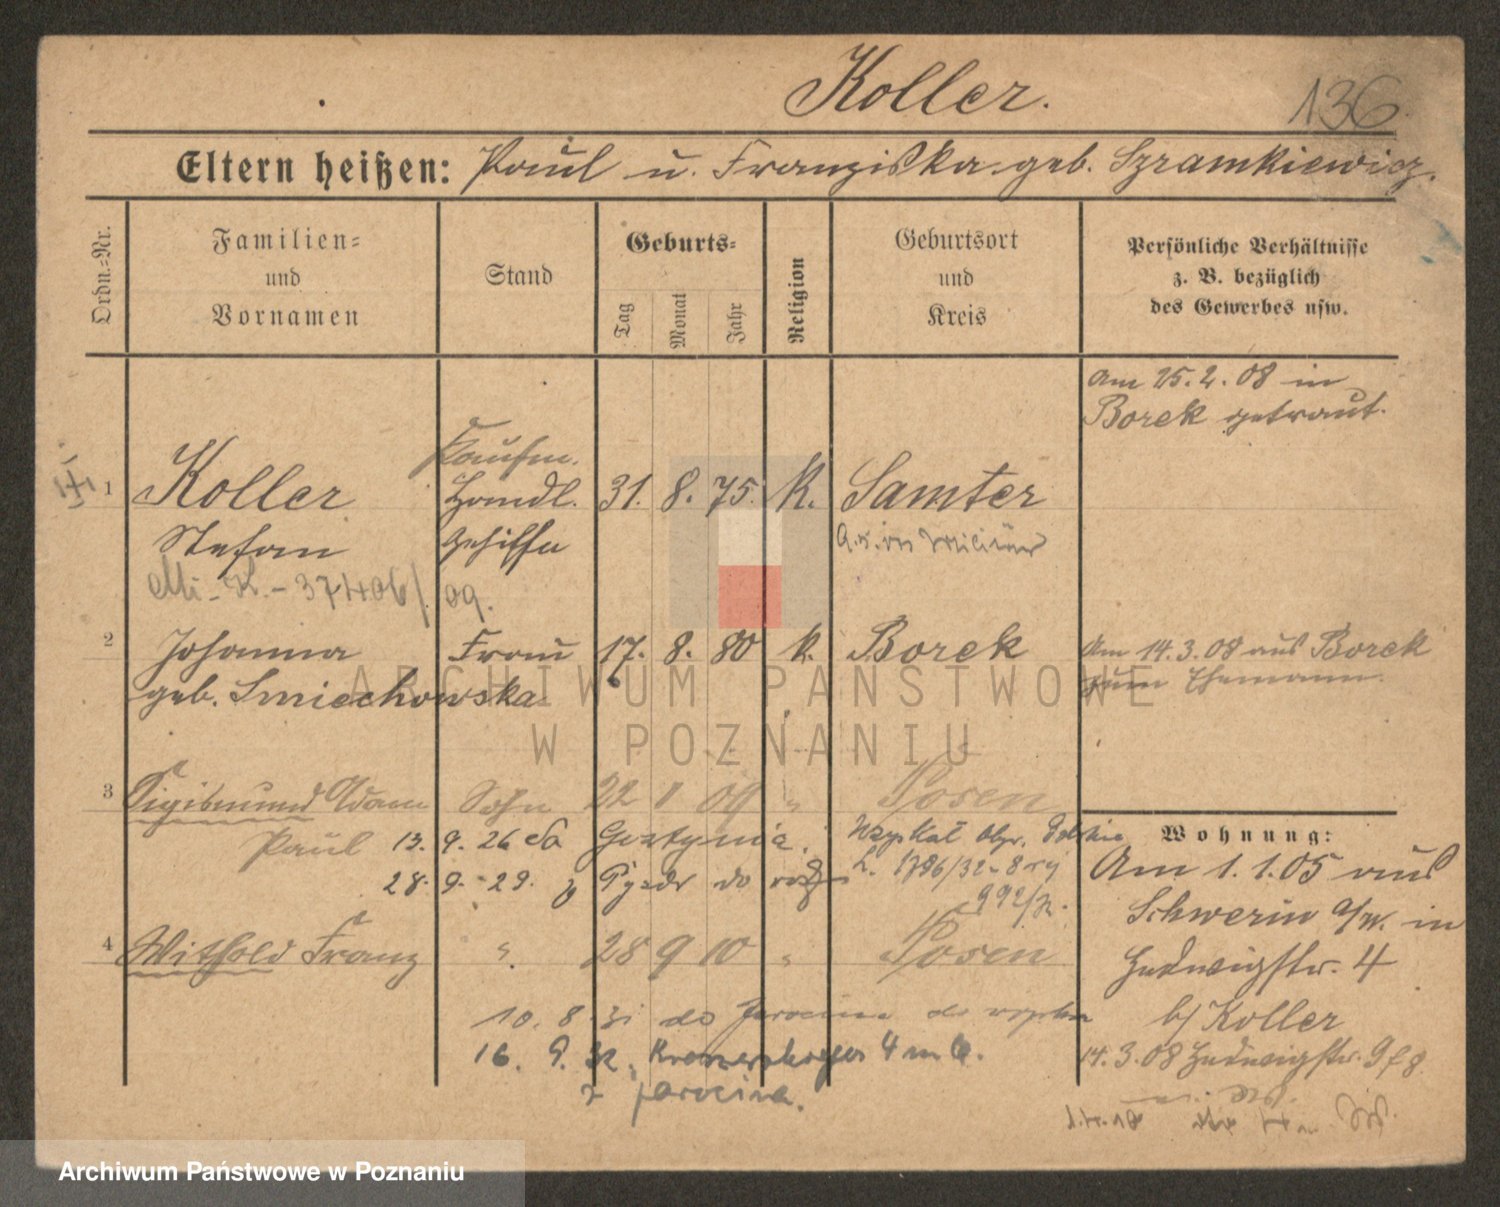 Koller.
136
Eltern heißen: Paul u. Franziska geb. Szramkiewicz.
Ordn.-Nr.
Familien-
und
Vornamen
Stand
Geburts-
Tag
Monat
Jahr
Religion
Geburtsort
und
Kreis
Persönliche Verhältnisse
z. B. bezüglich
des Gewerbes usw.
Am 25.2.08 in
Borek getraut.
Kaufm.
1 Koller Handl. 31. 8. 75. K. Samter
Stefan gehilfe
37406/09.
2 Johanna Frau 17. 8. 80 k. Borek Am 14.3.08 aus Borek
geb. Smiechowska zum Ehemann.
3 Sigismund Adam Sohn 22 1 09 " Posen
Paul 13. 9. 26 do Gostynia.
28. 9. 29. z do
992/
4 Withold Franz " 28 9 10 " Posen
Wohnung:
Am 1.1.05 aus
Schwerin a/W. in
Hedwigstr. 4
b/ Koller
14.3.08 Hedwigstr. 9
10. 8. 31 do Jarocina
16. 9. 32. 4 m 6.
z Jarocina.
ARCHIWUM PAŃSTWOWE
W POZNANIU
Archiwum Państwowe w Poznaniu